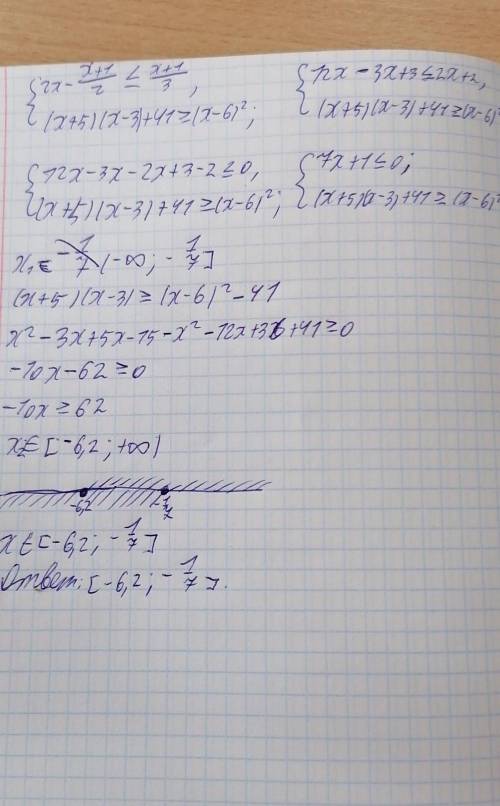 {2x - (x+1)/2 ≤ (x+1)/3, {12x - 3x+3 ≤ 2x+2,
{(x+5)(x-3)+41 ≥ (x-6)²; {(x+5)(x-3)+41 ≥ (x-6)²
{12x-3x-2x+3-2 ≤ 0, {7x+1 ≤ 0;
{(x+5)(x-3)+41 ≥ (x-6)²; {(x+5)(x-3)+41 ≥ (x-6)²
x₁ ∈ (-∞; -1/7]
(x+5)(x-3) ≥ (x-6)² - 41
x² - 3x+5x-15-x² - 12x+36+41 ≥ 0
-10x-62 ≥ 0
-10x ≥ 62
x₂ ∈ [-6,2; +∞)
-6,2 -1/7
x ∈ [-6,2; -1/7]
Ответ: [-6,2; -1/7].